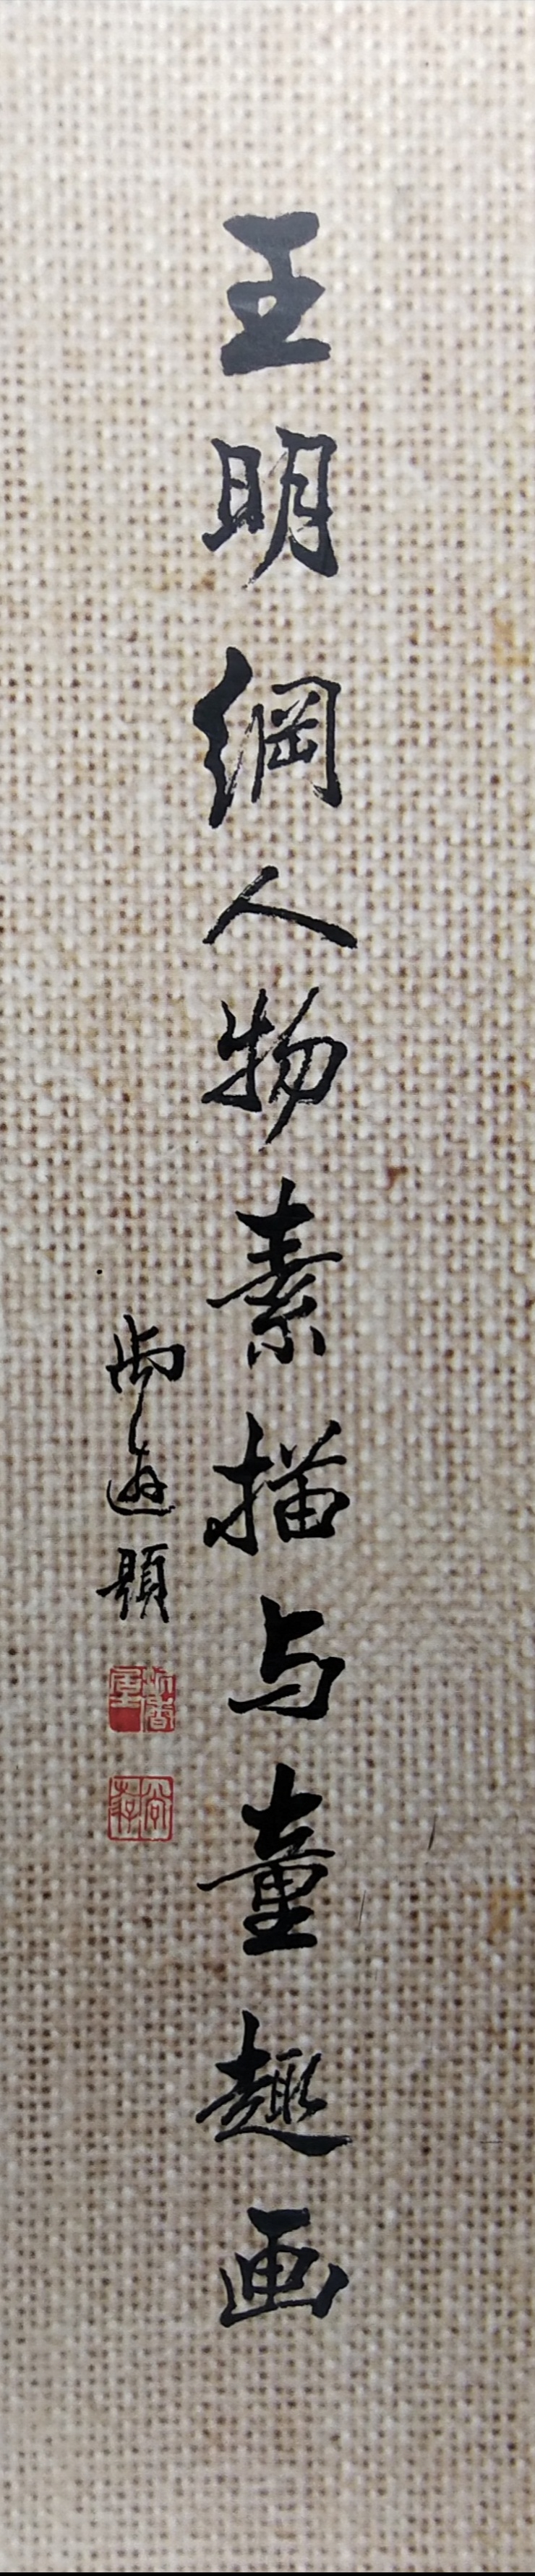 王明綱人物素描与童趣画
尚遊題